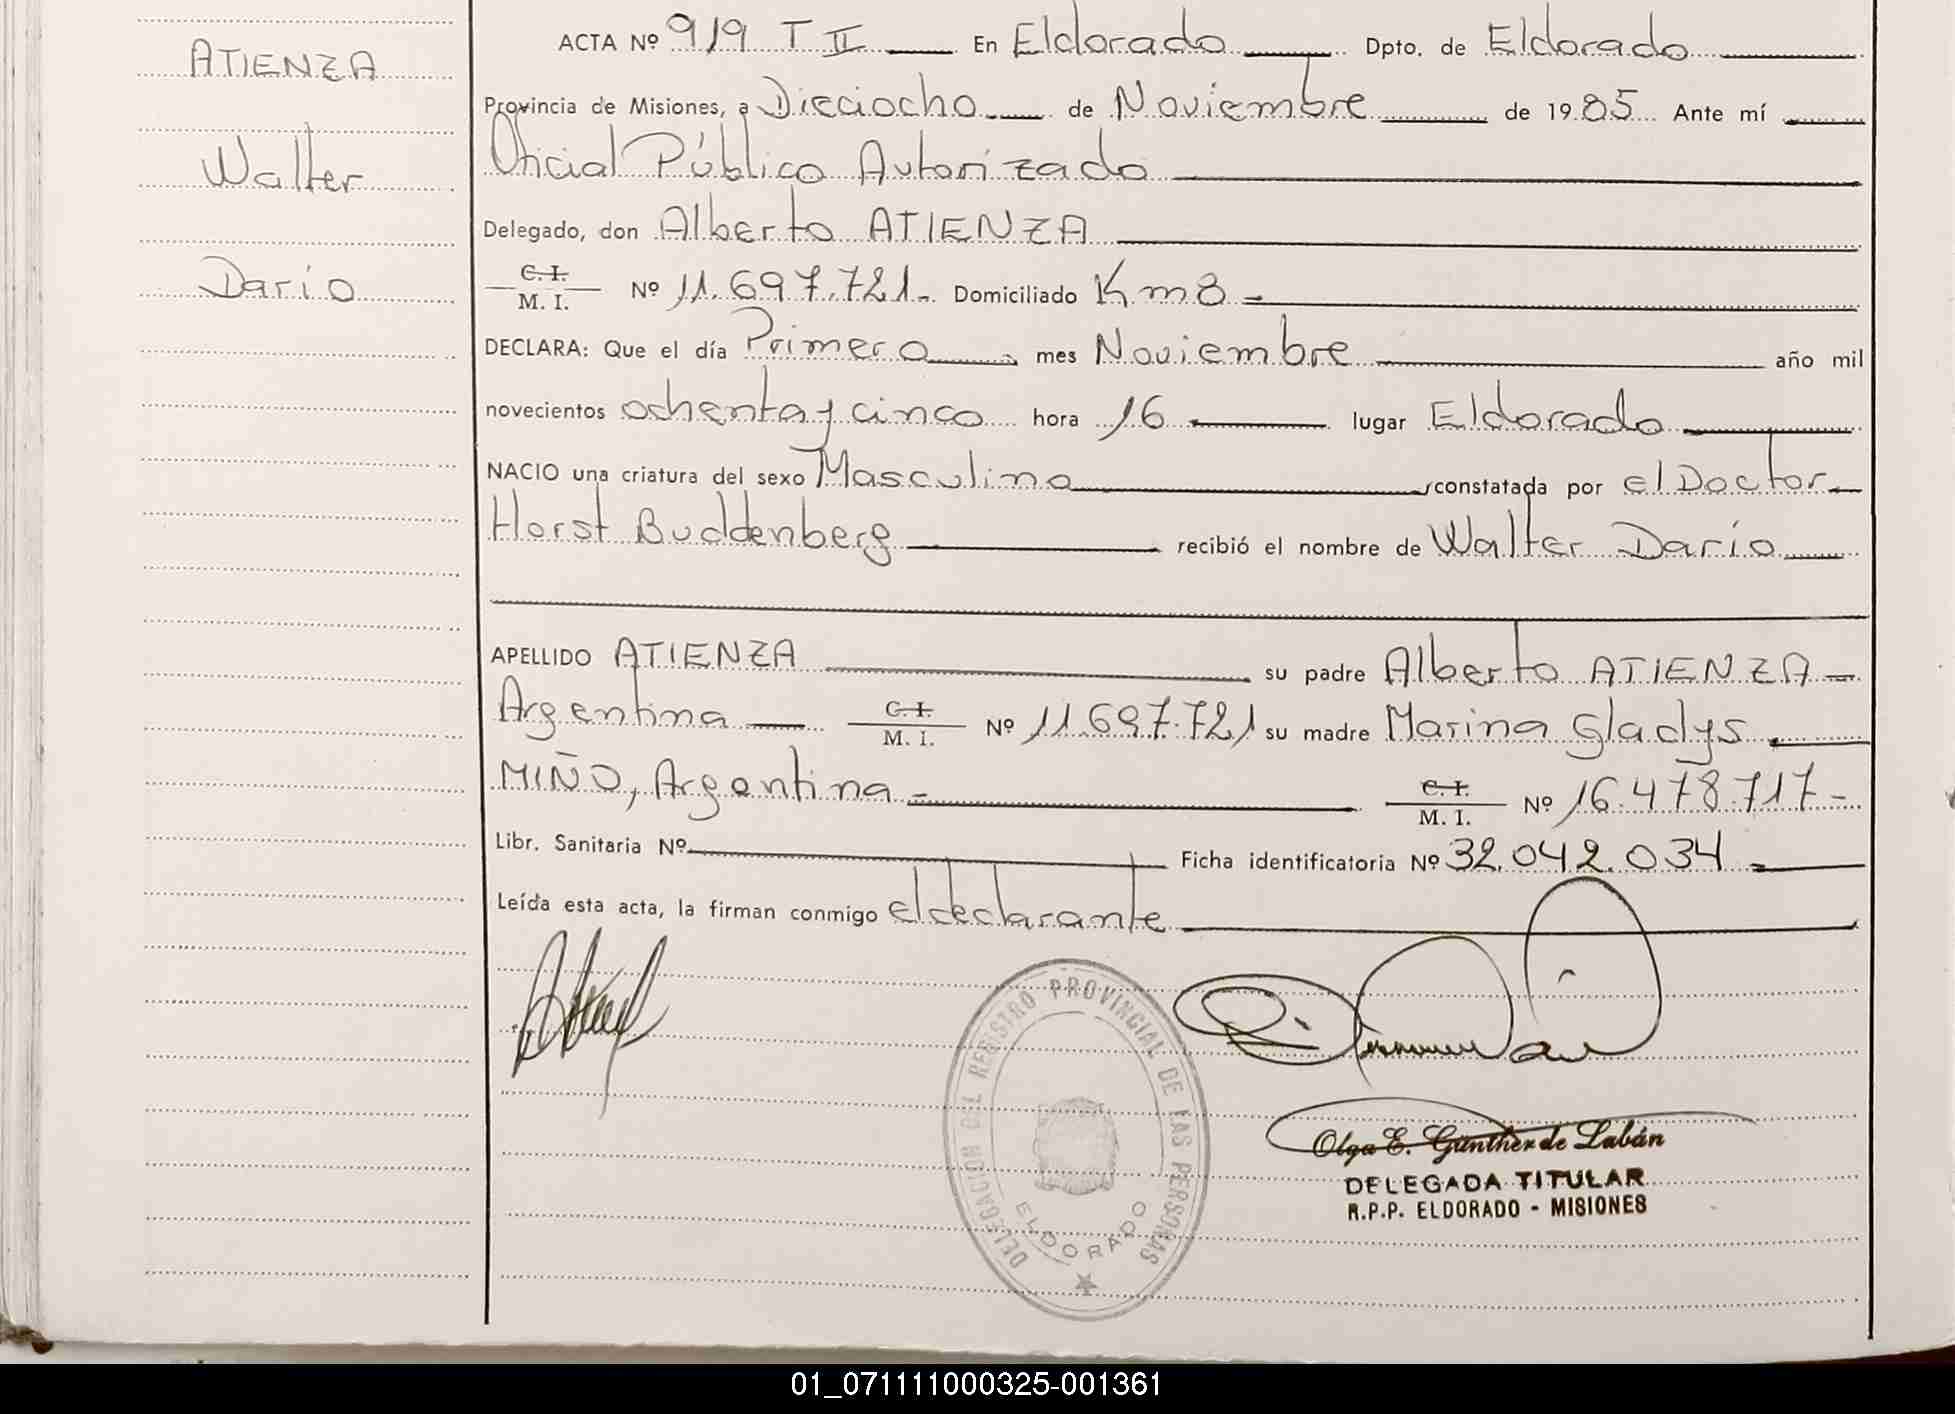 ATIENZA
Walter
Darío
ACTA Nº 919 T II En Eldorado Dpto. de Eldorado
Provincia de Misiones, a Dieciocho de Noviembre de 1985 Ante mí
Oficial Público Autorizado
Delegado, don Alberto ATIENZA
C. I.
M. I. Nº 11.697.721.- Domiciliado Km 8 -
DECLARA: Que el día Primero mes Noviembre año mil
novecientos ochenta y cinco hora 16 lugar Eldorado
NACIO una criatura del sexo Masculino constatada por el Doctor
Horst Buddenberg recibió el nombre de Walter Darío
APELLIDO ATIENZA su padre Alberto ATIENZA
Argentina C. I. M. I. Nº 11.697.721 su madre Marina Gladys
MIÑO, Argentina - C. I. M. I. Nº 16.478.717-
Libr. Sanitaria Nº Ficha identificatoria Nº 32.042.034 -
Leída esta acta, la firman conmigo el declarante
DELEGACION DEL REGISTRO PROVINCIAL DE LAS PERSONAS
ELDORADO
Olga E. Günther de Labán
DELEGADA TITULAR
R.P.P. ELDORADO - MISIONES
01_071111000325-001361